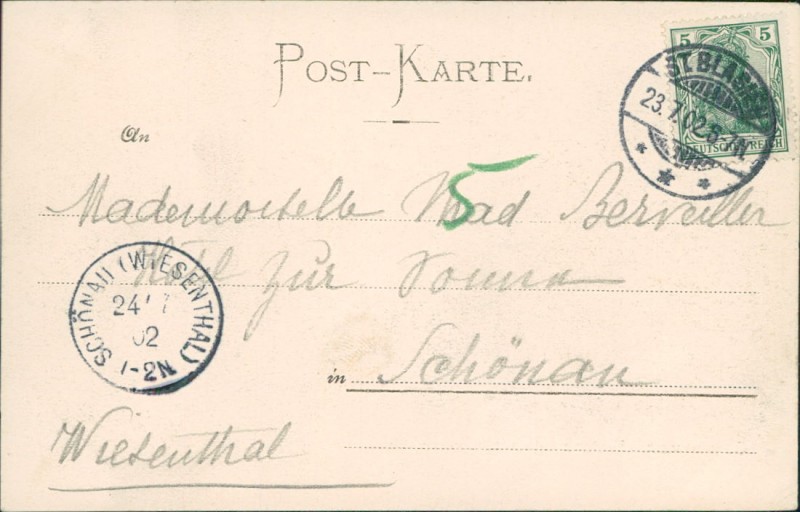 POST-KARTE.
5
DEUTSCHES REICH
ST. BLASIEN
23.7.02.6-7N.
An
5
Mademoiselle Berviller
Hôtel zur Sonne
SCHÖNAU (WIESENTHAL)
24 7
02
1-2N
in Schönau
Wiesenthal